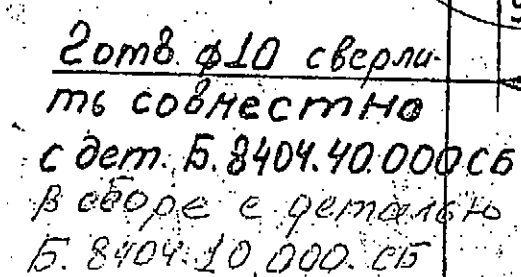 2 отв. ф10 сверли-
ть совместно
с дет. Б.8404.40.000 СБ
в сборе с деталью
Б.8404.10.000.СБ